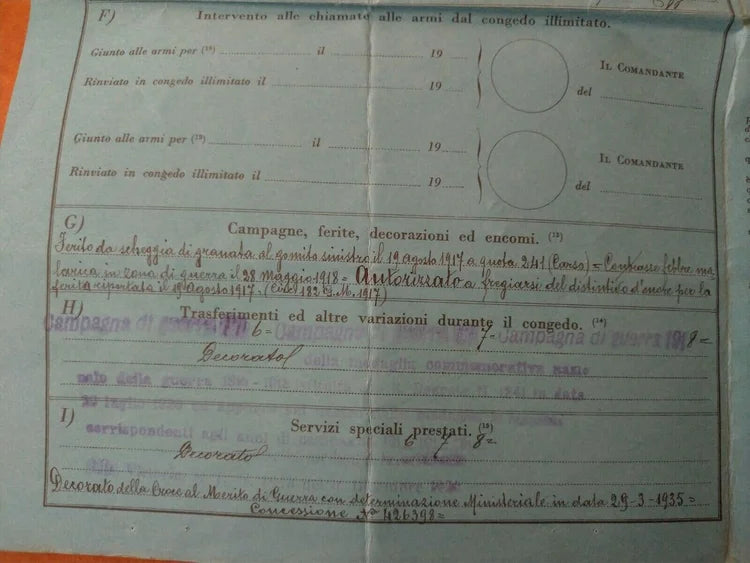 F) Intervento alle chiamate alle armi dal congedo illimitato.
Giunto alle armi per (12) il 19
Rinviato in congedo illimitato il 19
IL COMANDANTE
del
Giunto alle armi per (12) il 19
Rinviato in congedo illimitato il 19
IL COMANDANTE
del
G) Campagne, ferite, decorazioni ed encomi. (13)
Ferito da scheggia di granata al gomito sinistro il 19 agosto 1917 a quota 241 (Carso) = Contrasse febbre ma
larica in zona di guerra il 28 Maggio 1918 = Autorizzato a fregiarsi del distintivo d'onore per la
ferita riportata il 19 agosto 1917. (Circ 182 G. M. 1917)
H) Trasferimenti ed altre variazioni durante il congedo. (14)
Campagna di guerra 191 6 = Campagna di guerra 191 7 - Campagna di guerra 191 8 =
Decorato della medaglia commemorativa nazio
nale della guerra in data
I) Servizi speciali prestati. (15)
corrispondenti agli anni di campagna 6 7 8 =
Decorato della
Decorato della Croce al Merito di Guerra con determinazione Ministeriale in data 29-3-1935 =
Concessione N° 426398 =